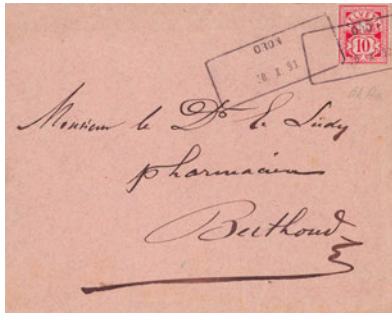 ORON
10
20. X. 91
Monsieur le Dr. E. Lüdy
pharmacien
Berthoud